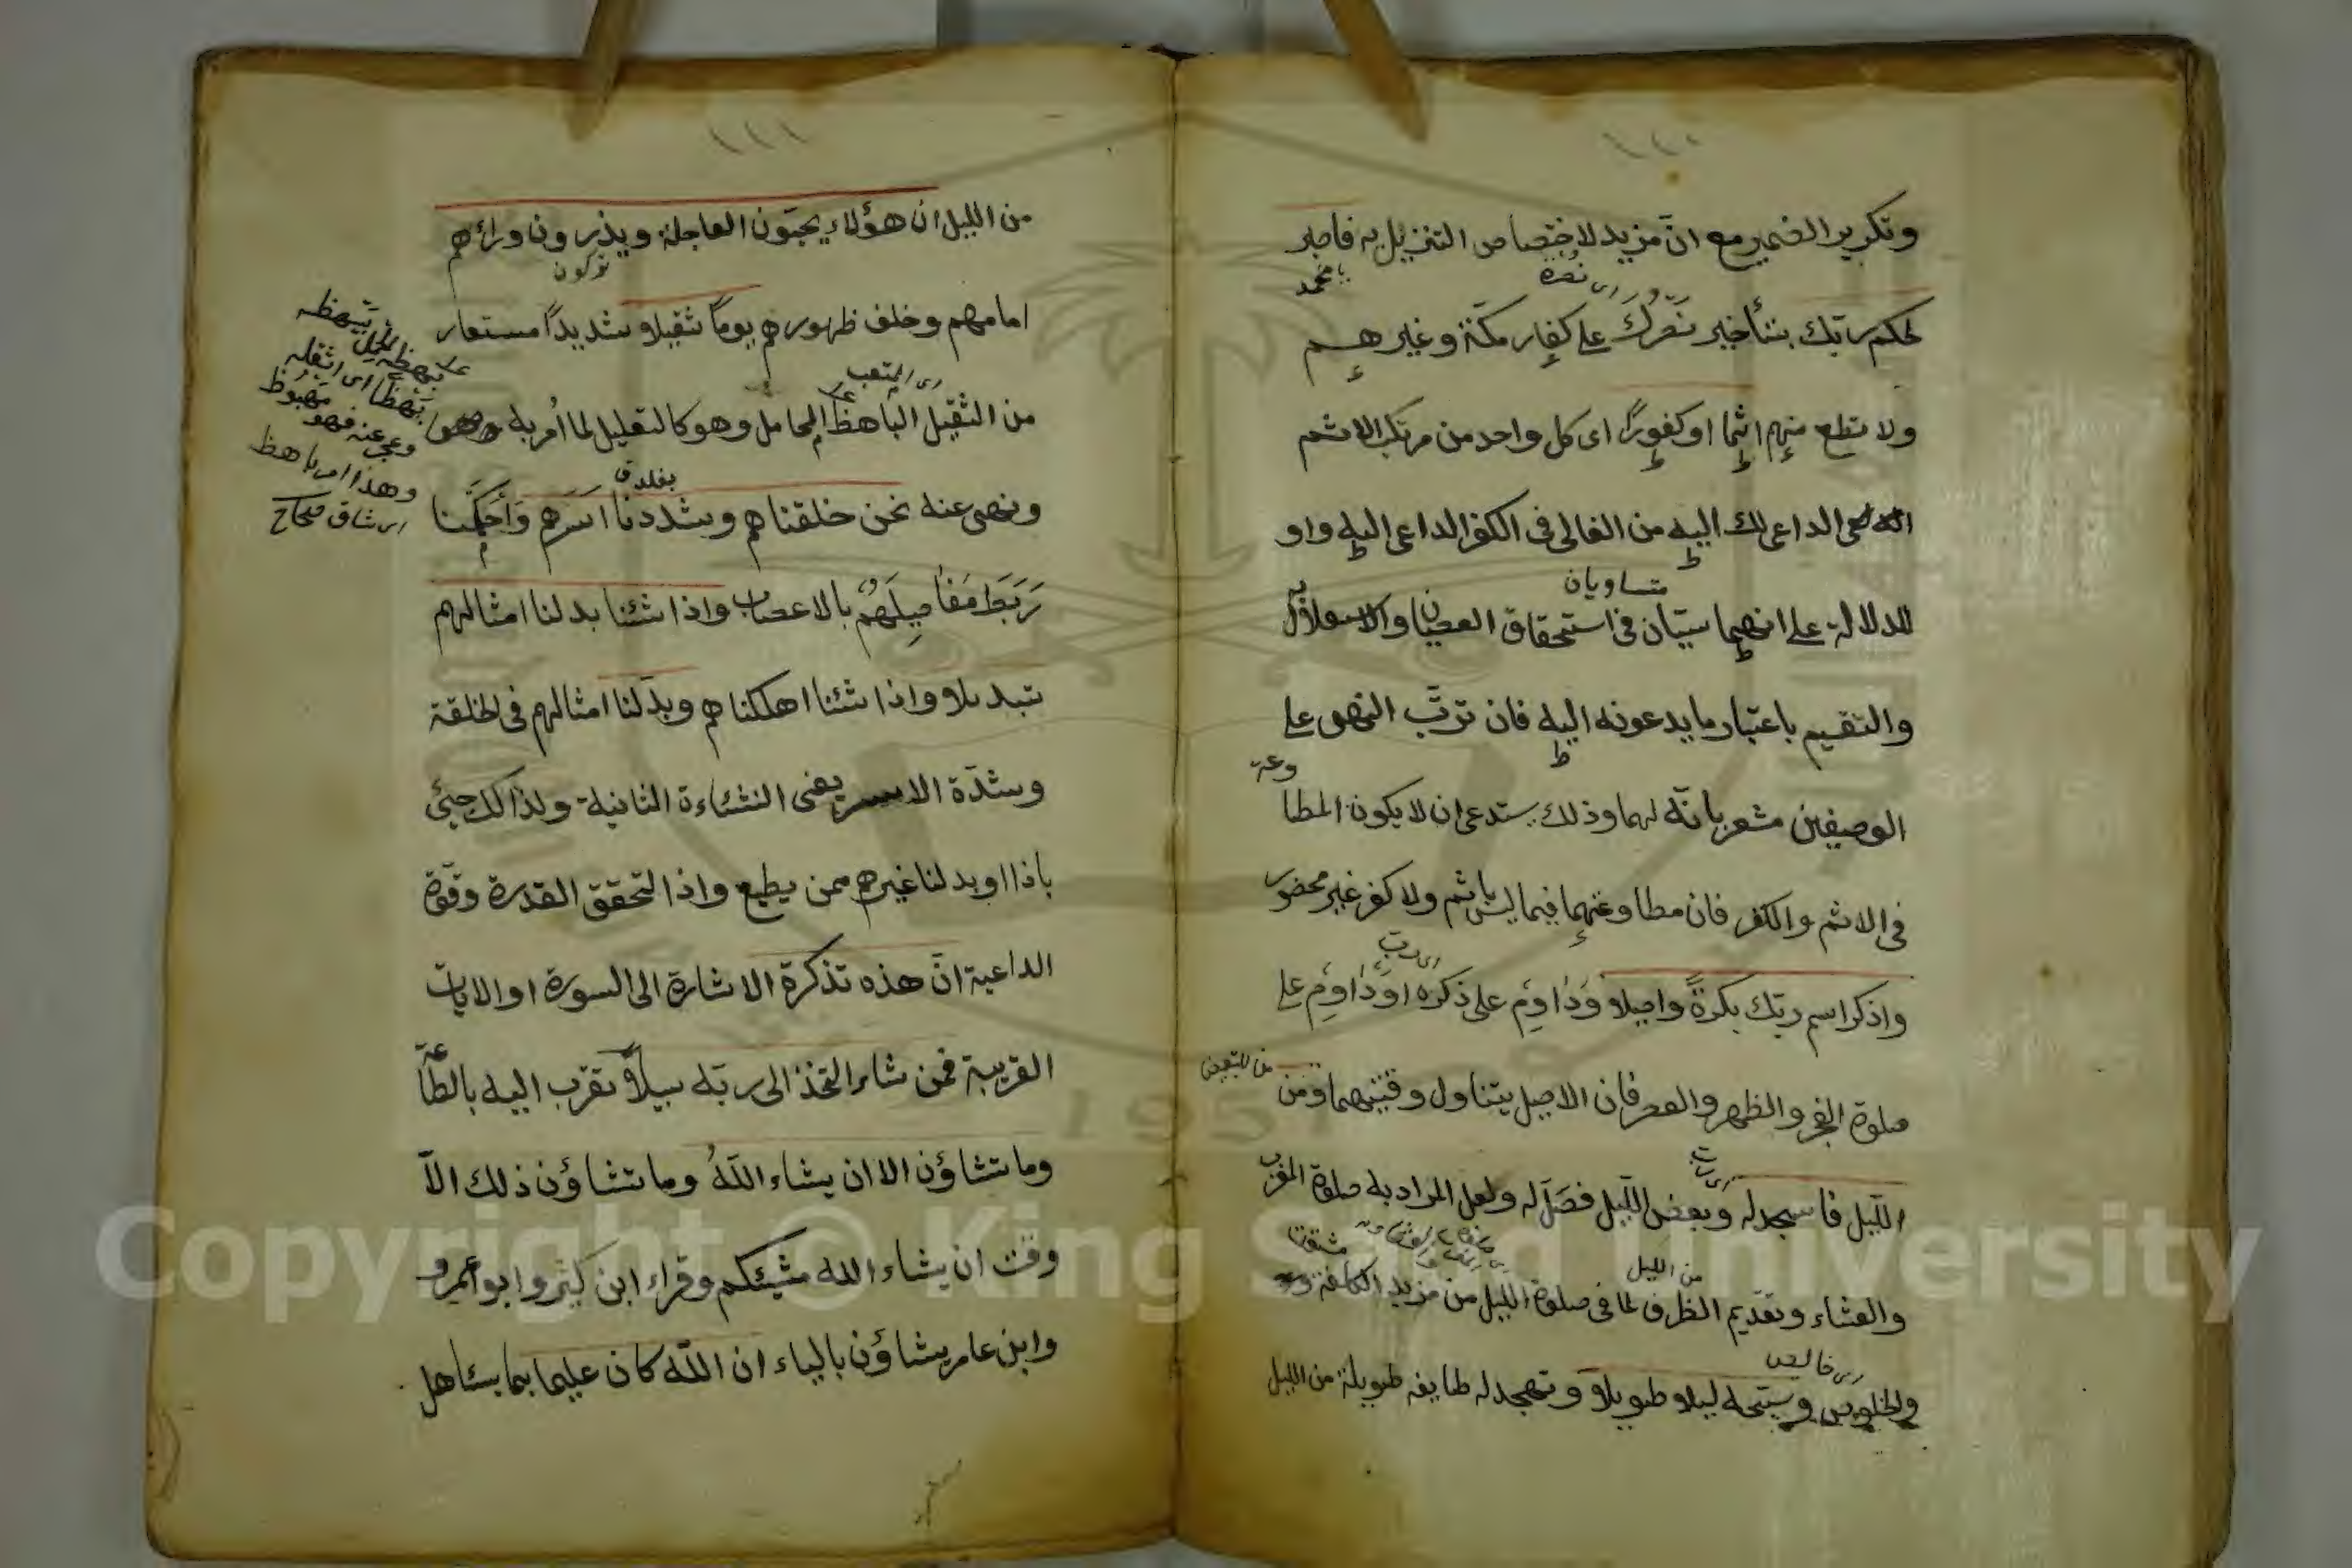 ١١٠
وتكرير الضمير مع ان مزيد لاختصاص التنزيل به فاصبر
يا محمد
لحكم ربك بتأخير نصرك على كفار مكة وغيرهم
اى نصره
ولا تطع منهم اثما او كفورًا اى كل واحد من مرتكب الاثم
الداعى لك اليه من الغالى فى الكفر الداعى اليه واو
للدلالة على انهما سيّان فى استحقاق العصيان والاستقلال به
متساويان
والتقسيم باعتبار ما يدعونه اليه فان ترتب النهى على
الوصفين مشعر بانه لهما وذلك يستدعى ان لا يكون المطاوعة
فى الاثم والكفر فان مطاوعتهما فيما ليس باثم ولا كفر غير محضور
واذكر اسم ربك بكرةً واصيلا وَدَاوِمْ على ذكره او دَاوِمْ على
صلوة الفجر والظهر والعصر فان الاصيل يتناول وقتيهما ومن
من للتبعيض
الليل فاسجد له وبعض الليل فصَلّ له ولعل المراد به صلوة المغرب
والعشاء وتقديم الظرف لما فى صلوة الليل من مزيد الكلفة
من الليل
مشقة
والخلوص وسبّحه ليلا طويلا وتهجد له طايفة طويلة من الليل
اى خالص
١١١
من الليل ان هؤلاء يحبّون العاجلة ويذرون ورائهم
تركون
امامهم وخلف ظهورهم يومًا ثقيلا شديدًا مستعار
من الثقيل الباهظ للحامل وهو كالتعليل لما اُمر به
اى المتعب
ونهى عنه نحن خلقناهم وشددنا اسرهم وَاَحْكَمْنا
رَبَطَ مَفَاصِيلَهُمْ بالاعصاب واذا شئنا بدلنا امثالهم
تبديلا واذا شئنا اهلكناهم وبدّلنا امثالهم فى الخلقة
وشدّة الاسر يعنى النشاءة الثانية ولذالك جيئ
باذا او بدلنا غيرهم ممن يطيع واذا لتحقق القدرة وقوّة
الداعية انّ هذه تذكرة الاشارة الى السورة او الايات
القريبة فمن شاء اتخذ الى ربّه سبيلًا تقرّب اليه بالطّاعة
وما تشاؤن الا ان يشاء اللّهُ وما تشاؤن ذلك الّا
وقت ان يشاء الله مشيئكم وقراء ابن كثير وابو عمرو
وابن عامر يشاؤن بالياء ان اللّه كان عليما بما يستاهل
بهظه الحمل يبهظه
بَهْظًا اى اثقله
وعجز عنه فهو مبهوظ
وهذا امر باهظ
اى شاق صحاح